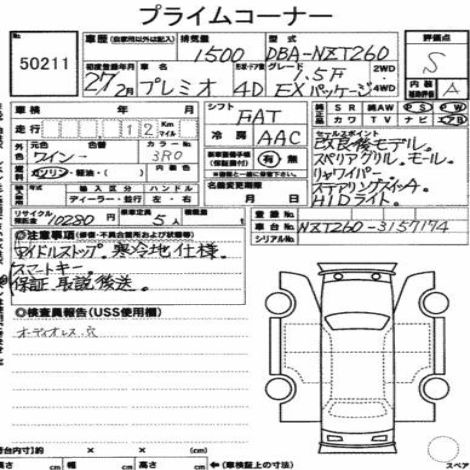 プライムコーナー
50211
車歴 (自家用以外は記入) 排気量 1500 型式 DBA-NZT260 評価点 S
初度登録年月 27年2月 車名 プレミオ 形状・ドア数 4D グレード 1.5F EXパッケージ 2WD 4WD
内装補助評価 A
車検 年 月 シフト FAT 純正品 SR 純AW PS PW
走行 12 Km マイル カワ TV ナビ エアB
外色 元色 ワイン 色替 カラーNo. 3R0 冷房 AAC
内装色
セールスポイント
改良後モデル。
スペリアグリル。モール。
リヤワイパー。
ステアリングスイッA。
HIDライト。
燃料 ガソリン・軽油・( ) 新車整備手帳(保証書付) 有 無
※御社と一緒に保管下さい
輸入車 輸入区分 ハンドル 名義変更期限
ディーラー・並行 左・右 月 日
リサイクル預託金 10280円 乗車定員 5人 積載量 t
登録No.
車台No. NZT260-3157174
シリアルNo.
◎注意事項 (修復・不具合箇所および状態等)
アイドルストップ。寒冷地仕様。
スマートキー。
保証。取説後送。
◎検査員報告(USS使用欄)
オーディオレス.穴
荷台内寸 × × cm
長さ cm 幅 cm 高さ cm ←(車検証上の寸法)
スペア